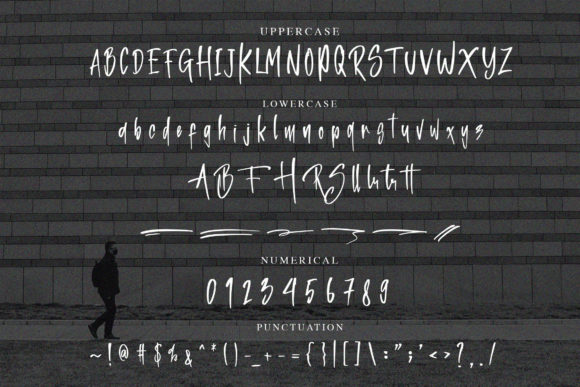 UPPERCASE
ABCDEFGHIJKLMNOPQRSTUVWXYZ
LOWERCASE
abcdefghijklmnopqrstuvwxyz
ABFHRS
NUMERICAL
0123456789
PUNCTUATION
~!@#$%&^*()-_+-={}|[]\:";'<>?,./